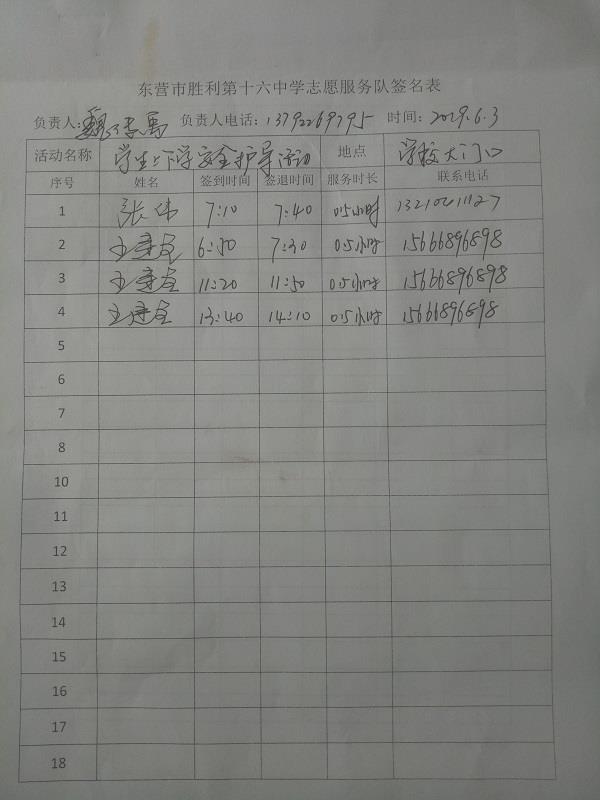 东营市胜利第十六中学志愿服务队签名表
负责人: 负责人电话: 13792269795 时间: 2019.6.3
活动名称 学生上下学安全护导活动 地点 学校大门口
序号 姓名 签到时间 签退时间 服务时长 联系电话
1 张伟 7:10 7:40 0.5小时
2 6:50 7:30 0.5小时 15666896898
3 11:20 11:50 0.5小时 15666896898
4 13:40 14:10 0.5小时 15666896898
5
6
7
8
10
11
12
13
14
15
16
17
18